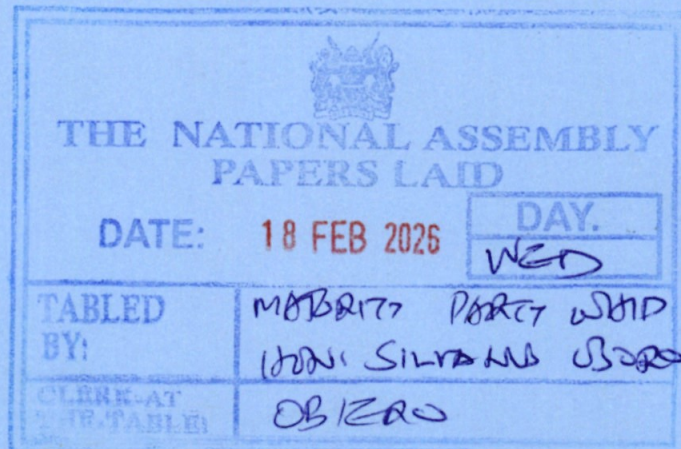 THE NATIONAL ASSEMBLY
PAPERS LAID
DATE: 18 FEB 2026 DAY.
WED
TABLED BY: MAJORITY PARTY WHIP
HON. SILVANUS OSORO
CLERK-AT THE-TABLE: OBIERO